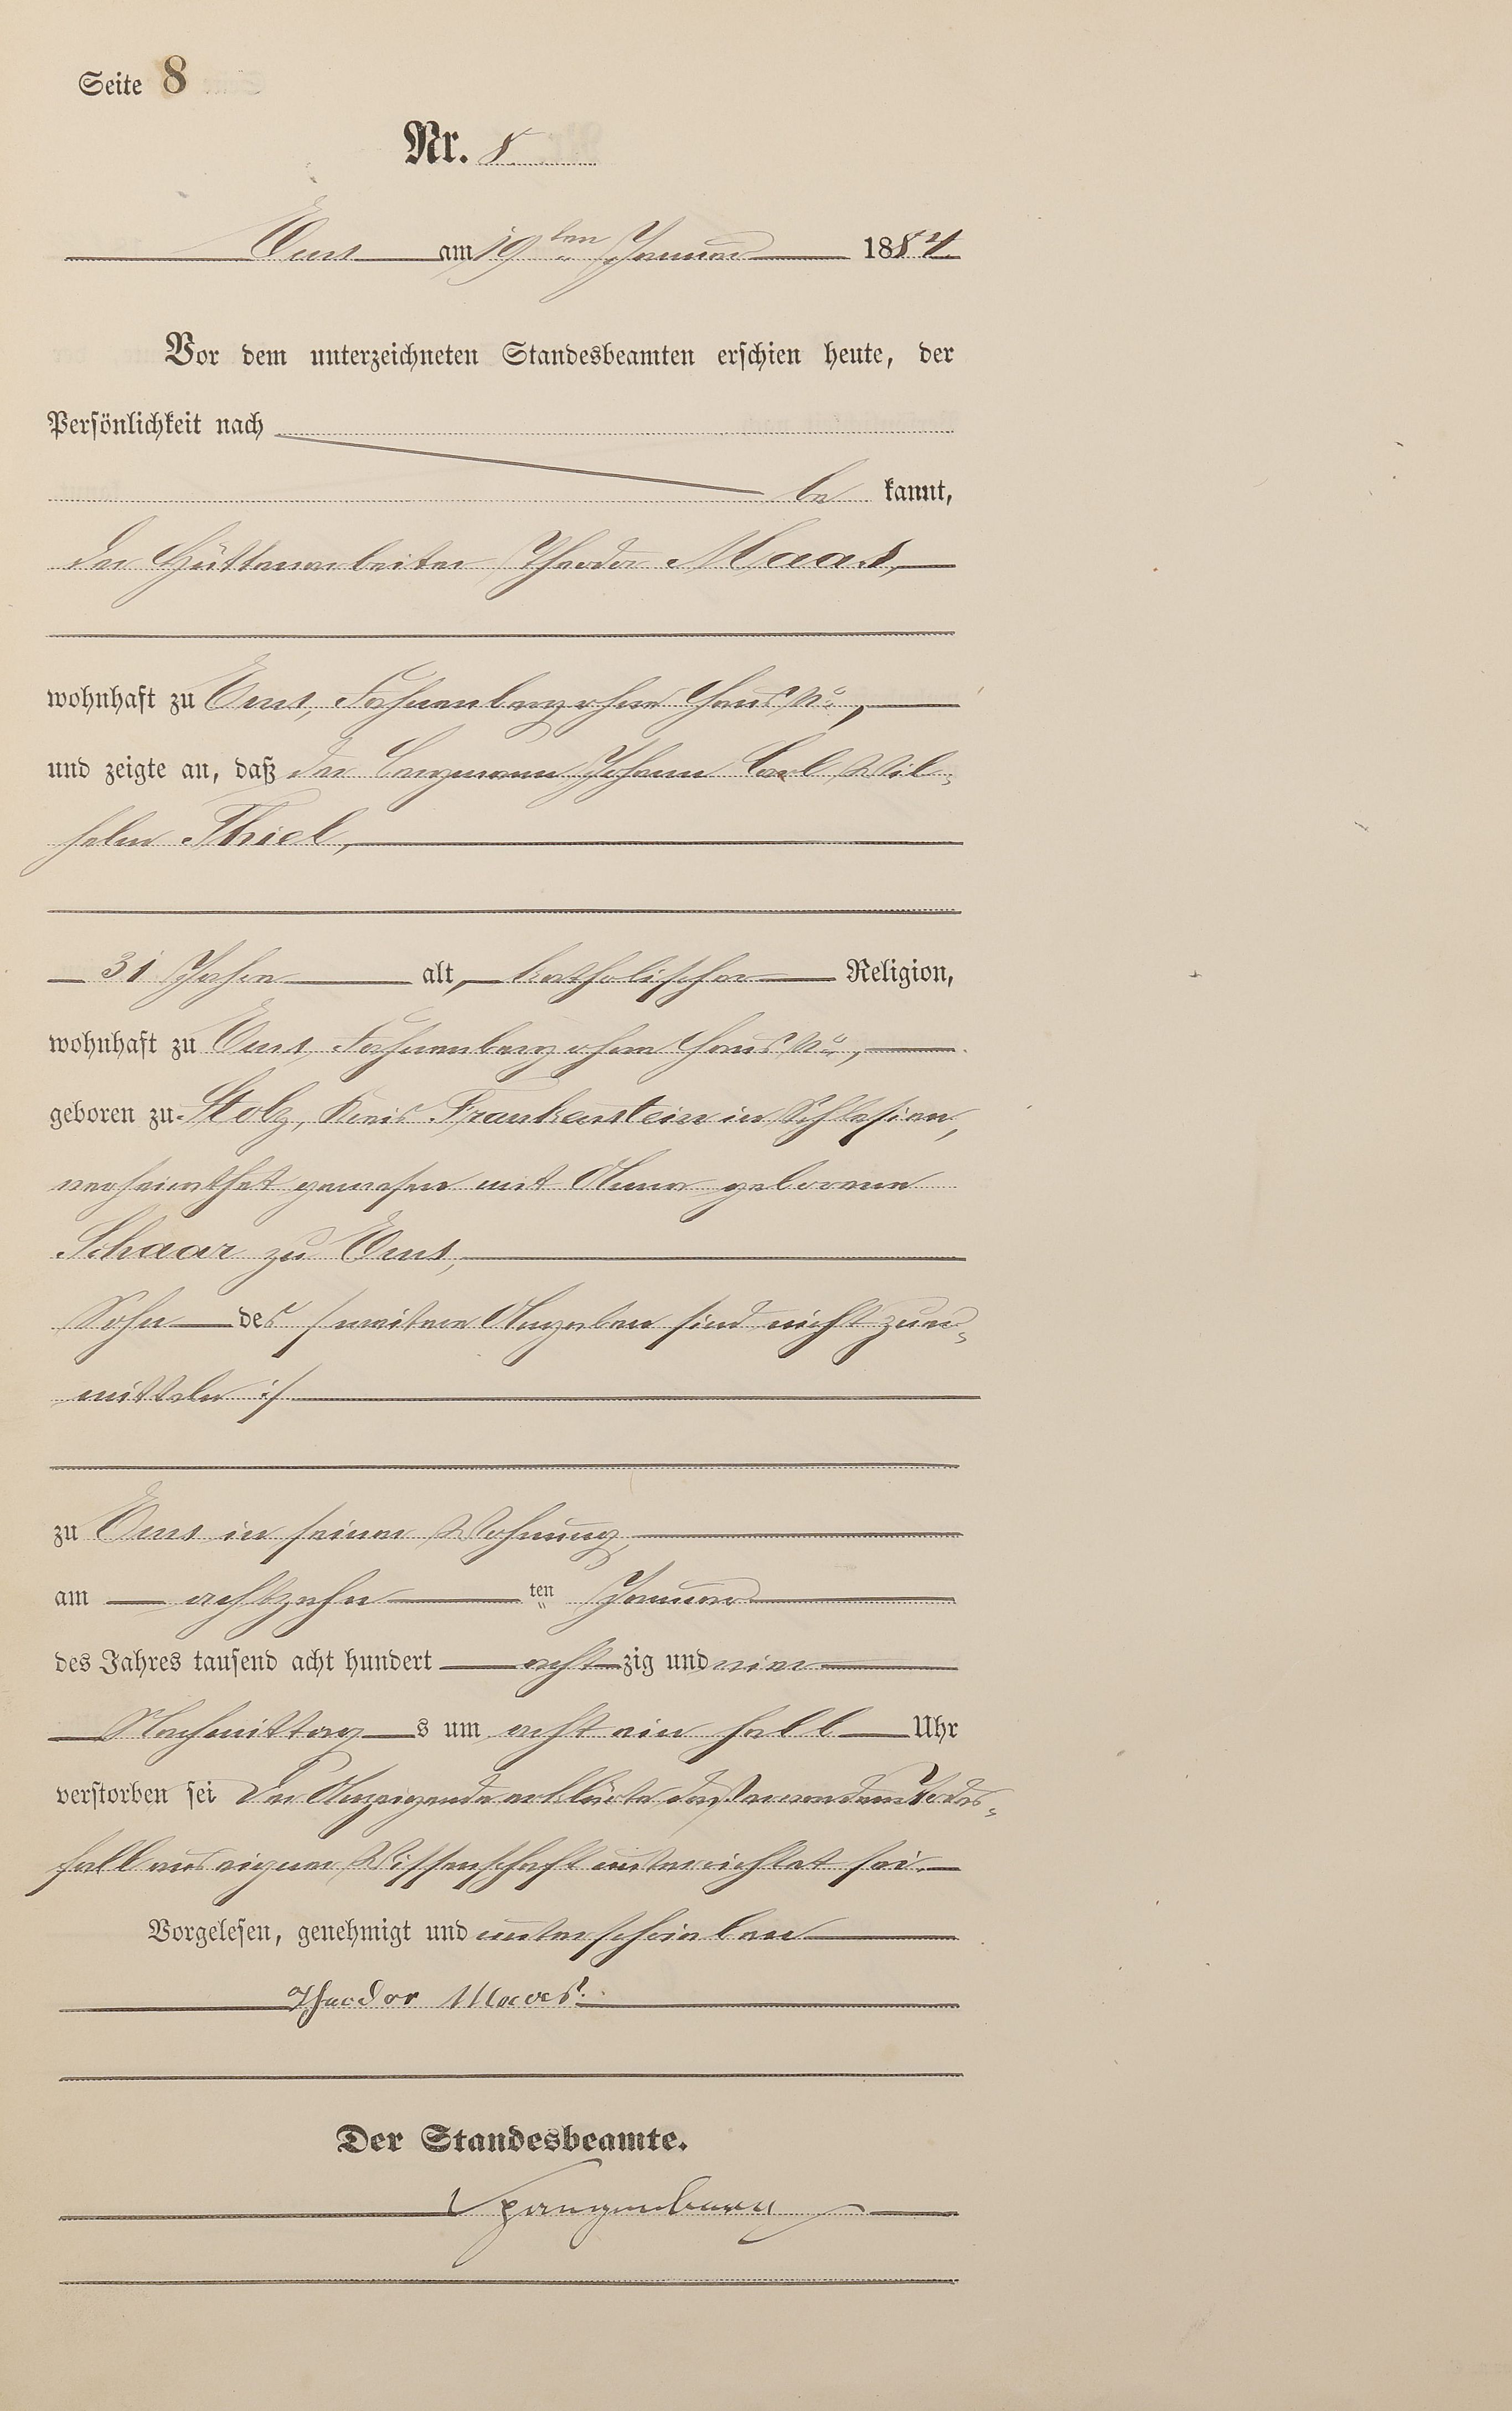 Seite 8
Nr. 8
Ems am 19ten Januar 1884.
Vor dem unterzeichneten Standesbeamten erschien heute, der
Persönlichkeit nach
be kannt,
der Hüttenarbeiter Theodor Maas,
wohnhaft zu Ems, Fahnenberg ohne Haus No,
und zeigte an, daß der Bergmann Johann Carl Wil-
helm Thiel,
31 Jahre alt, katholischer Religion,
wohnhaft zu Ems, Fahnenberg ohne Haus No,
geboren zu Stolz, Kreis Frankenstein in Schlesien,
verheirathet gewesen mit Anna geborene
Schaar zu Ems,
Sohn des / weitere Angaben sind nicht zu er-
mitteln :/
zu Ems in seiner Wohnung,
am achtzehn ten Januar
des Jahres tausend acht hundert acht zig und vier
Nachmittag s um acht ein halb Uhr
verstorben sei Der Anzeigende erklärte, daß er von dem Todes-
fall aus eigner Wissenschaft unterrichtet sei.
Vorgelesen, genehmigt und unterschrieben
Theodor Maas.
Der Standesbeamte.
Spangenberg